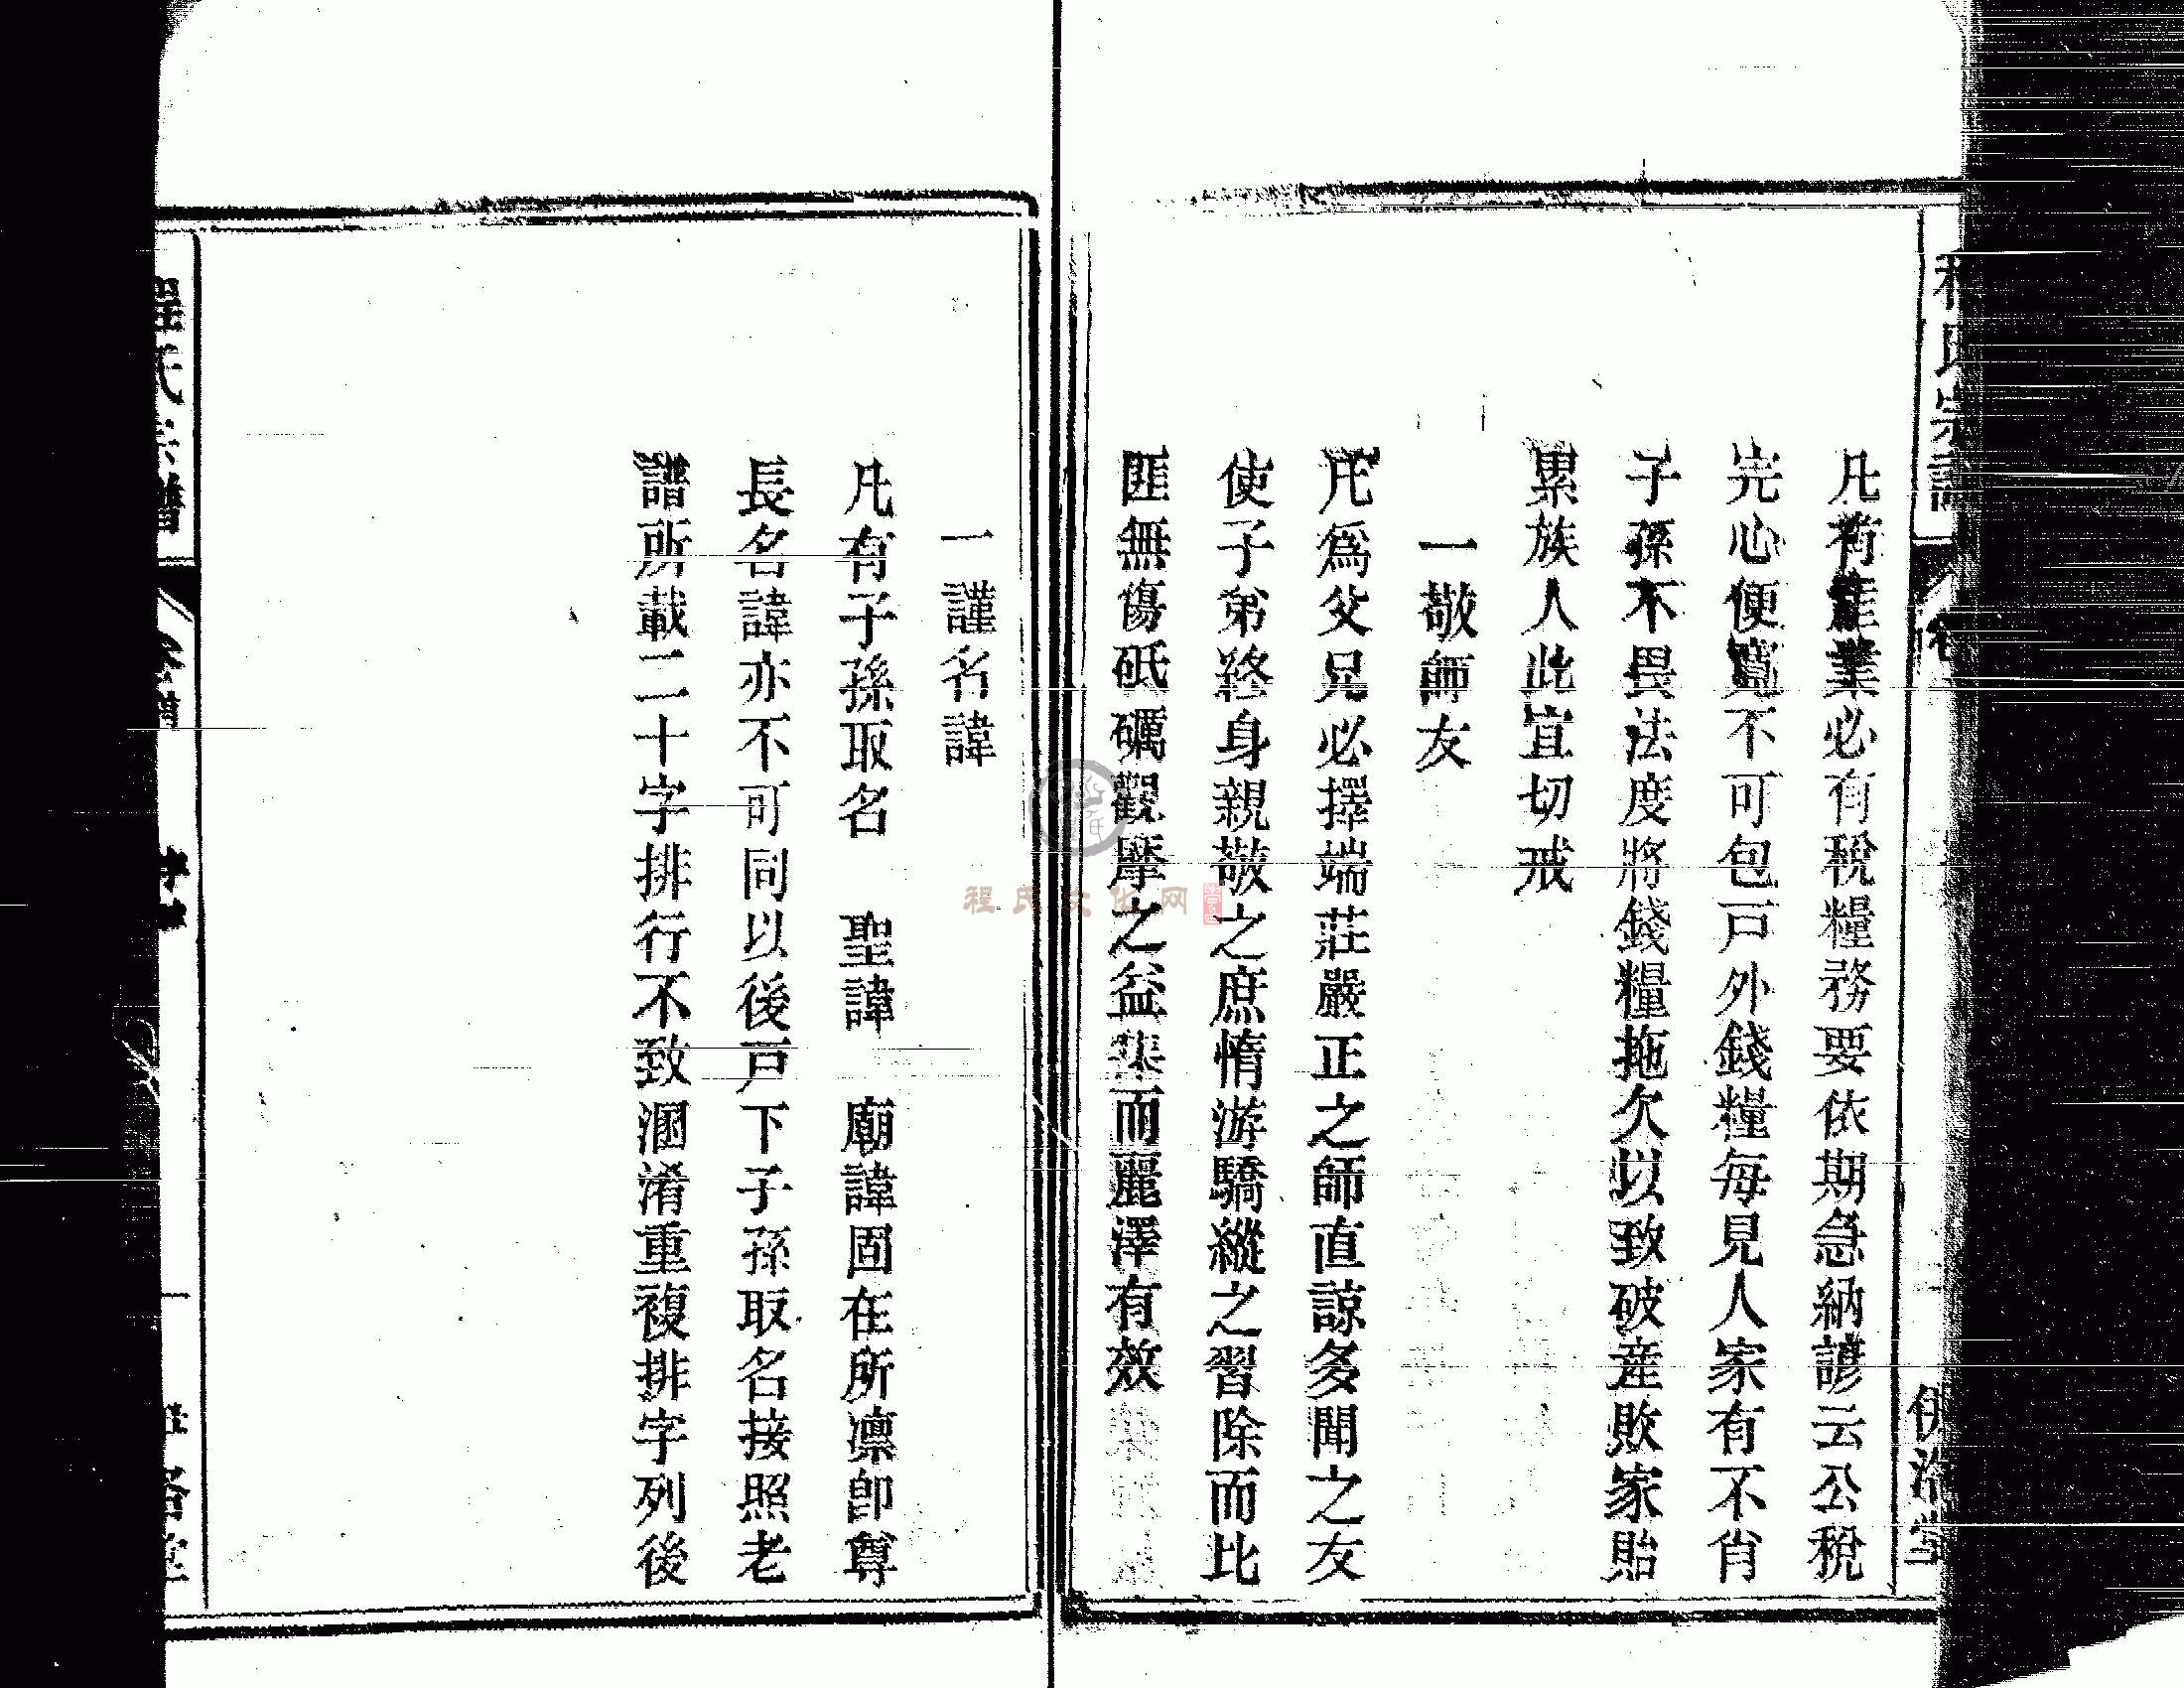 程氏宗譜
凡有產業必有稅糧務要依期急納諺云公稅
完心便寬不可包戸外錢糧每見人家有不肖
子孫不畏法度將錢糧拖欠以致破産敗家貽
累族人此宜切戒
一敬師友
凡爲父兄必擇端莊嚴正之師直諒多聞之友
使子弟終身親敬之庶惰游驕縱之習除而比
匪無傷砥礪觀摩之益集而麗澤有效
一謹名諱
凡有子孫取名 聖諱 廟諱固在所凛卽尊
長名諱亦不可同以後戸下子孫取名接照老
譜所載二十字排行不致溷淆重複排字列後
程氏宗譜
程氏文化网